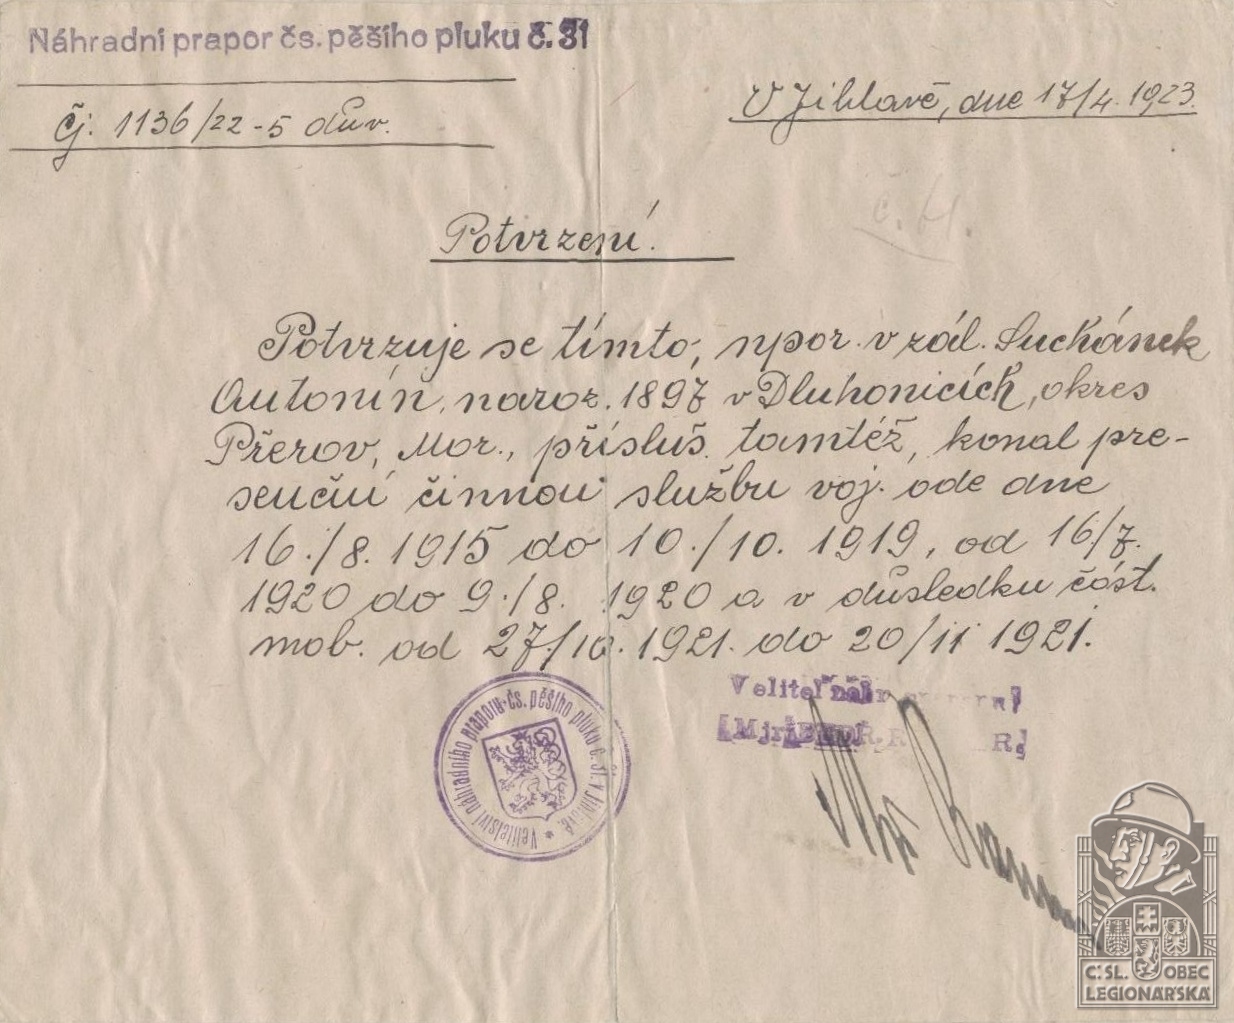 Náhradní prapor čs. pěšího pluku č. 31
Čj. 1136/22-5 dův.
V Jihlavě, dne 17/4. 1923.
č. H.
Potvrzení.
Potvrzuje se tímto, npor. v zál. Suchánek
Antonín, naroz. 1897 v Dluhonicích, okres
Přerov, Mor., přísluš. tamtéž, konal pre-
senční činnou službu voj. ode dne
16./8. 1915 do 10./10. 1919, od 16/7.
1920 do 9./8. 1920 a v důsledku část.
mob. od 27/10. 1921. do 20/11 1921.
Velitel náhr.
Mjr.
Velitelství náhradního praporu čs. pěšího pluku č. 31. v Jihlavě.
Č. SL. OBEC
LEGIONÁŘSKÁ